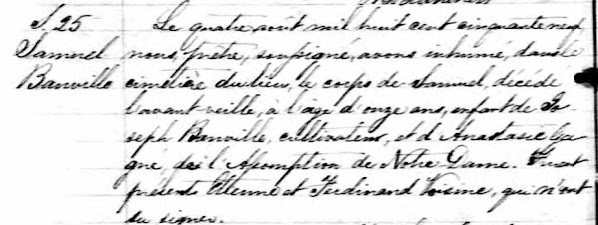 S 25 Le quatre août mil huit cent cinquante neuf
Samuel nous, prêtre, soussigné, avons inhumé, dans le
Banville cimetière du lieu, le corps de Samuel, décédé
l'avant veille, à l'âge d'onze ans, enfant de Jo-
seph Banville, cultivateur, et d'Anastasie Ga-
gné, de l'Assomption de Notre Dame. Furent
présents Etienne et Ferdinand Voisine, qui n'ont
su signer.